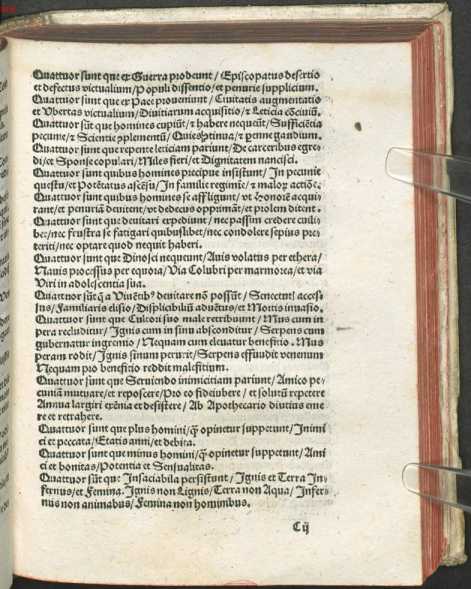 Quattuor sunt que ex Guerra prodeunt / Episcopatus desertio
et defectus victualium / Populi dissentio / et penurie supplicium.
Quattuor sunt que ex Pace proueniunt / Ciuitatis augmentatio
et Vbertas victualium / Diuitiarum acquisitio / ⁊ Leticia cõciuiũ.
Quattuor sũt que homines cupiũt / ⁊ habere nequeũt / Sufficiẽtia
pecunie / ⁊ Scientie
Quattuor sunt que repente leticiam pariunt / De carceribus egre
di / et Sponse copulari / Miles fieri / et Dignitatem nancisci.
Quattuor sunt quibus homines precipue insistunt / In pecunie
questu / et Potẽtatus ascẽsu / In familie regimie / ⁊
Quattuor sunt quibus homines se affligunt / vt hõnorẽ acqui
rant / et penuriã deuitent / vt dedecus opprimãt / et prolem ditent.
Quattuor sunt que deuitari expediunt / nec passim credere cuili
bet / nec frustra se fatigari quibuslibet / nec condolere sepius pre
teriti / nec optare quod nequit haberi.
Quattuor sunt que Dinosci nequeunt / Auis volatus per ethera /
Nauis processus per equora / Via Colubri per marmorea / et via
Viri in adolescentia sua.
Quattuor sũt deuitare nõ possũt / Senectutis acces
sus / Familiaris elisio / Displicibiliũ aduẽtus / et Mortis inuasio.
Quattuor sunt que Cultori suo male retribuunt / Mus cum in
pera recluditur / Ignis cum in sinu absconditur / Serpens cum
gubernatur in gremio / Nequam cum eleuatur beneficio. Mus
peram rodit / Ignis sinum perurit / Serpens effundit venenum
Nequam pro beneficio reddit maleficium.
Quattuor sunt que Seruiendo inimiciciam pariunt / Amico pe
cuniã mutuare / et reposcere / Pro eo fideiubere / et solutũ repetere
Annua largiri exẽnia et desistere / Ab Apothecario diutius eme
re et retrahere.
Quattuor sunt que plus homini / q̃ opinetur suppetunt / Inimi
ci et peccata / Etatis anni / et debita.
Quattuor sunt que minus homini / q̃ opinetur suppetunt / Ami
ci et bonitas / Potentia et Sensualitas.
Quattuor sũt que Insaciabila persistunt / Ignis et Terra In
fernus / et Femina. Ignis non Lignis / Terra non Aqua / Infer
nus non animabus / Femina non hominibus.
Cij